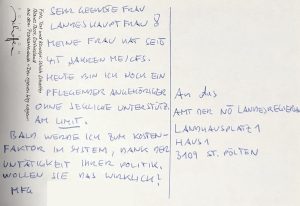 SEHR GEEHRTE FRAU
LANDESHAUPTFRAU!
MEINE FRAU HAT SEIT
4½ JAHREN ME/CFS.
HEUTE BIN ICH NOCH EIN
PFLEGENDER ANGEHÖRIGER
OHNE JEGLICHE UNTERSTÜTZ.
AM LIMIT.
BALD WERDE ICH ZUM KOSTEN-
FAKTOR IM SYSTEM, DANK DER
UNTÄTIGKEIT IHRER POLITIK.
WOLLEN SIE DAS WIRKLICH?
MFG
An das
AMT DER NÖ LANDESREGIERUNG
LANDHAUSPLATZ 1
HAUS 1
3109 ST. PÖLTEN